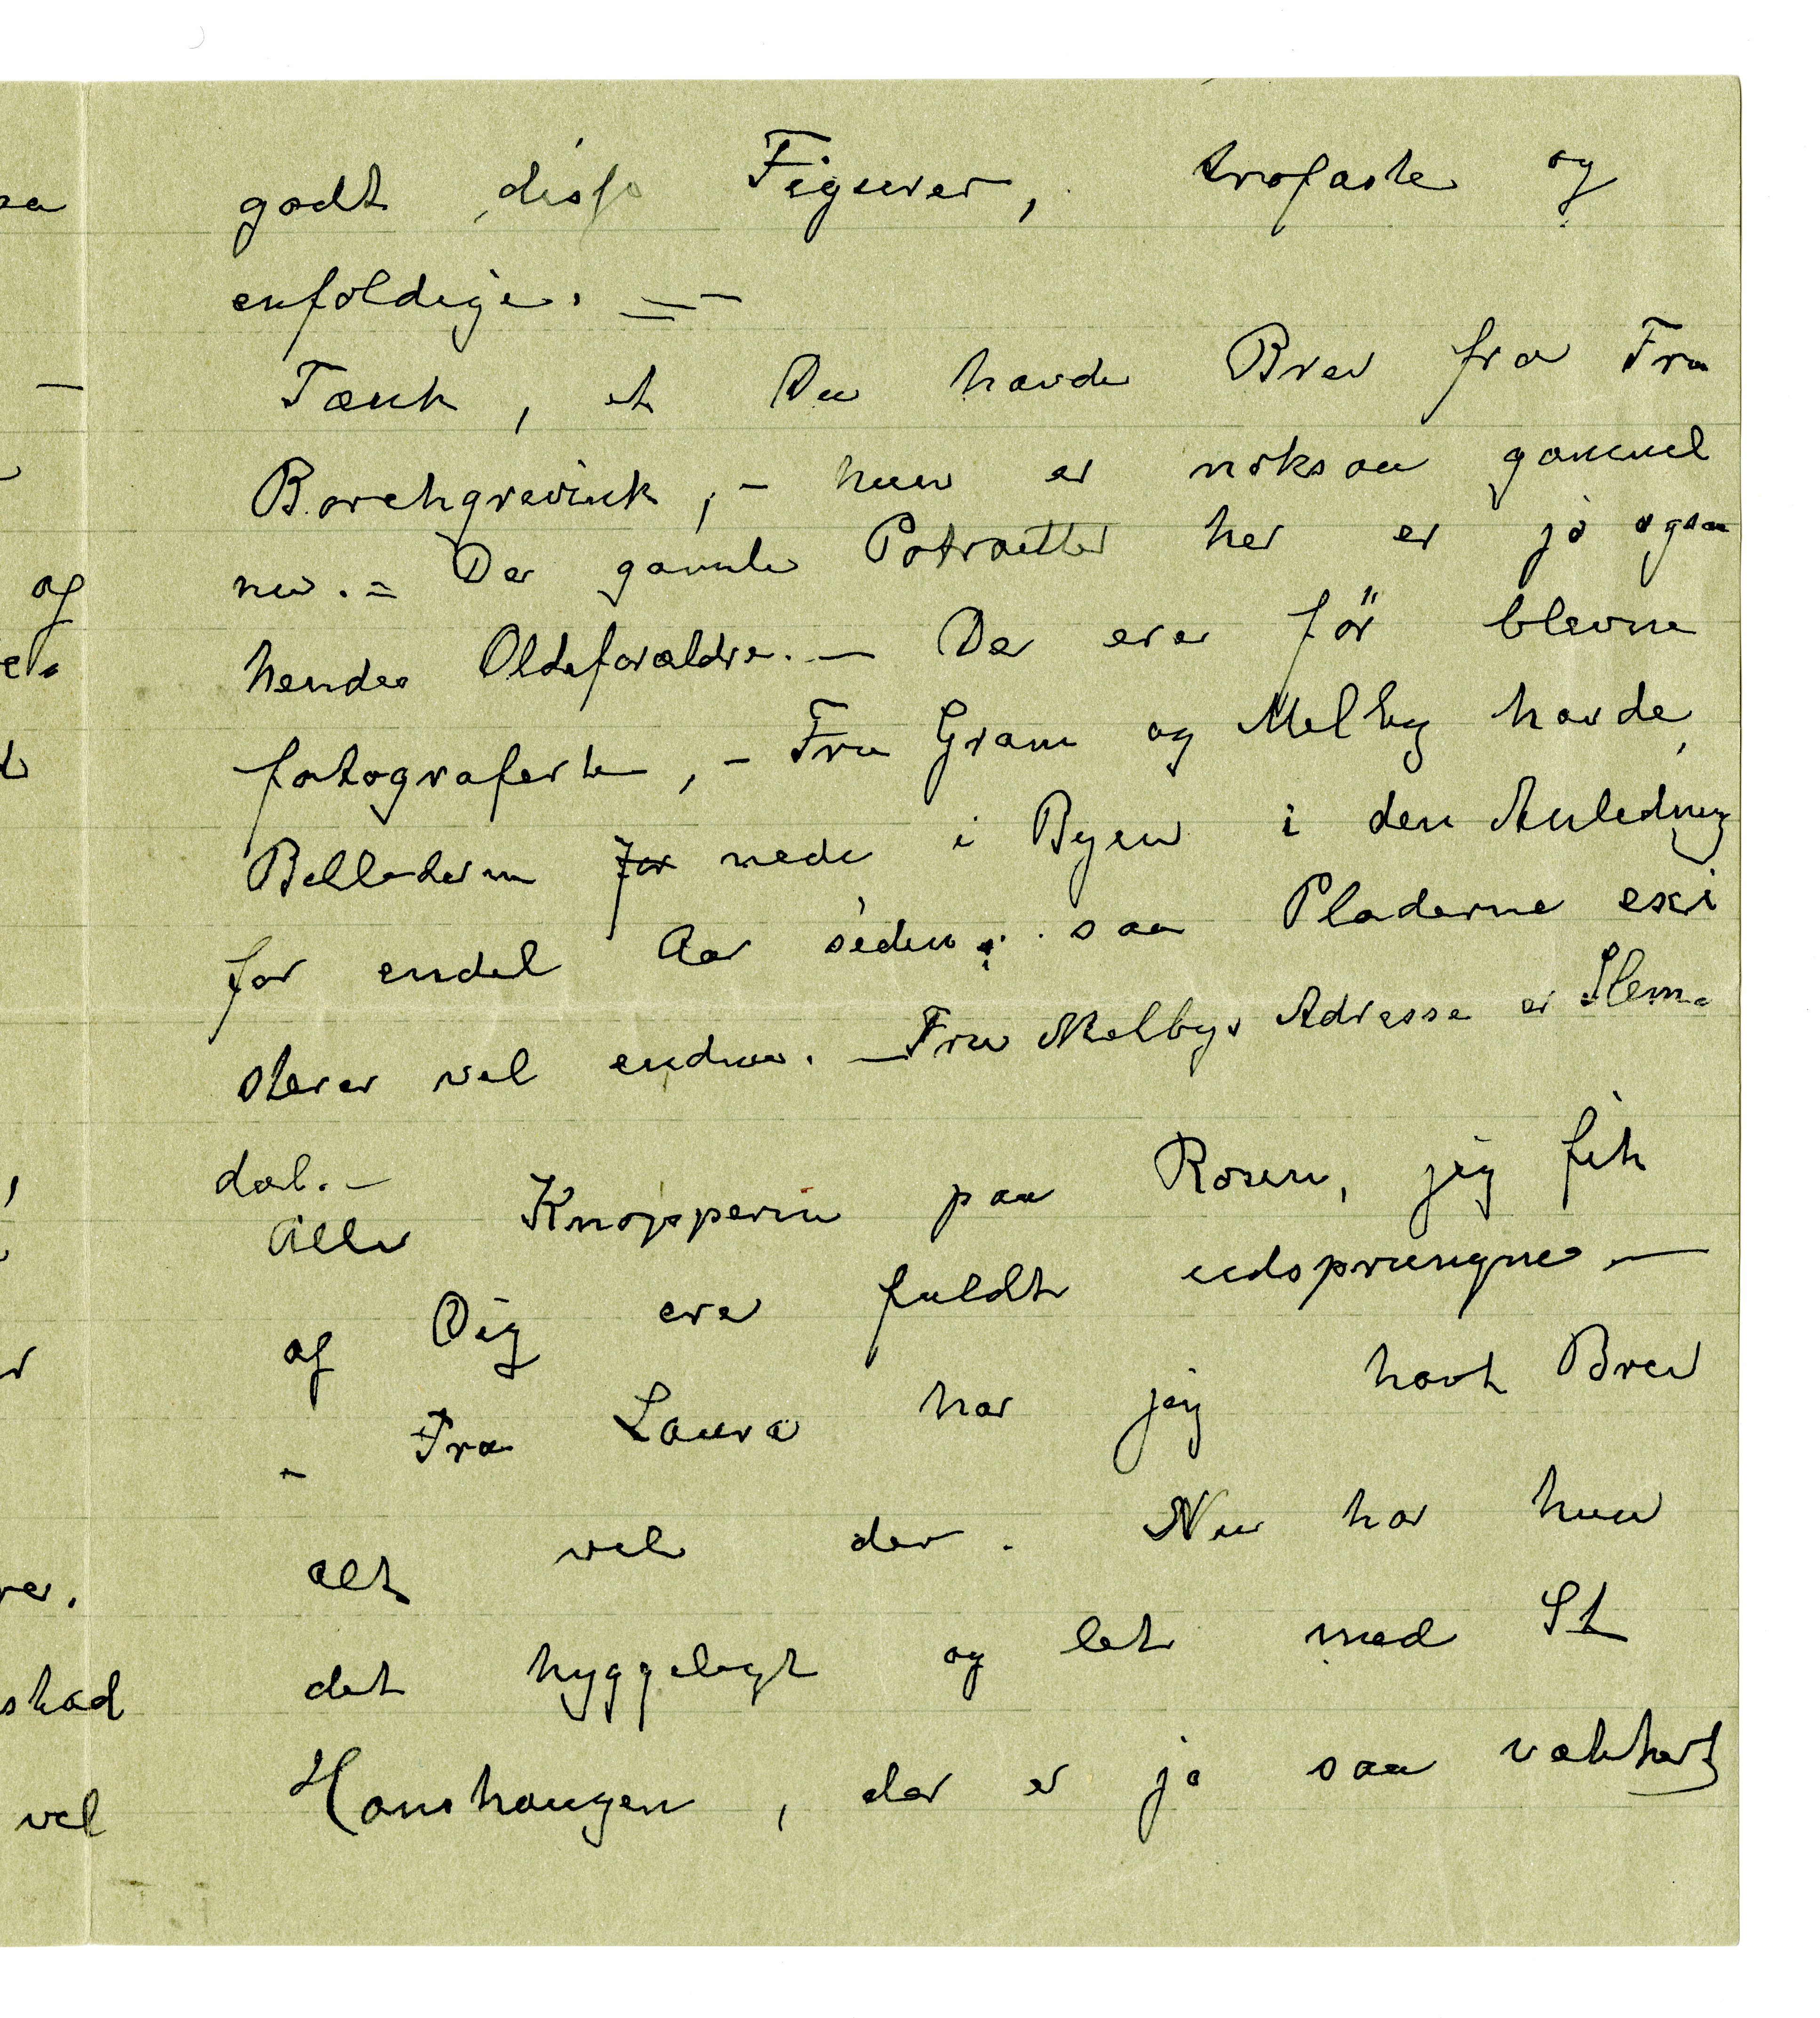 godt disse Figurer, trofaste og
enfoldige. —
Tænk, at Du havde Brev fra Fru
Borchgrevink, - hun er noksaa gammel
nu. = De gamle Potrætter her er jo ogsaa
hendes Oldeforældre. — De ere før blevne
fotograferte, - Fru Gram og Melby havde
Billederne for nede i Byen i den Anledning
for endel Aar siden; saa Pladerne exi
sterer vel endnu. — Fru Melbys Adresse er Slem-
dal. —
Alle Knopperne paa Rosen, jeg fik
af Dig ere fuldt udsprungne —
- Fra Laura har jeg havt Brev
alt vel der. Nu har hun
det hyggeligt og let med St
Hanshaugen, der er jo saa vakkert
sa
—
og
skad
vel